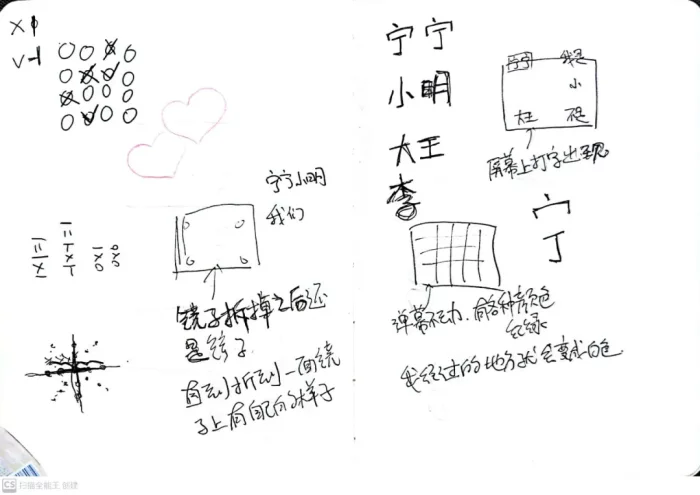 x 1
v -1
宁宁小明
我们
镜子拆掉之后还
是镜子
直到拆到一面镜
子上有自己的样子
二 三
x T x o o
宁宁
小明
大王
李
宁宁 我是
小
大王
屏幕上打字出现
宀
丁
弹幕不动.有各种颜色
红绿
我经过的地方就会变成白色
CS 扫描全能王 创建